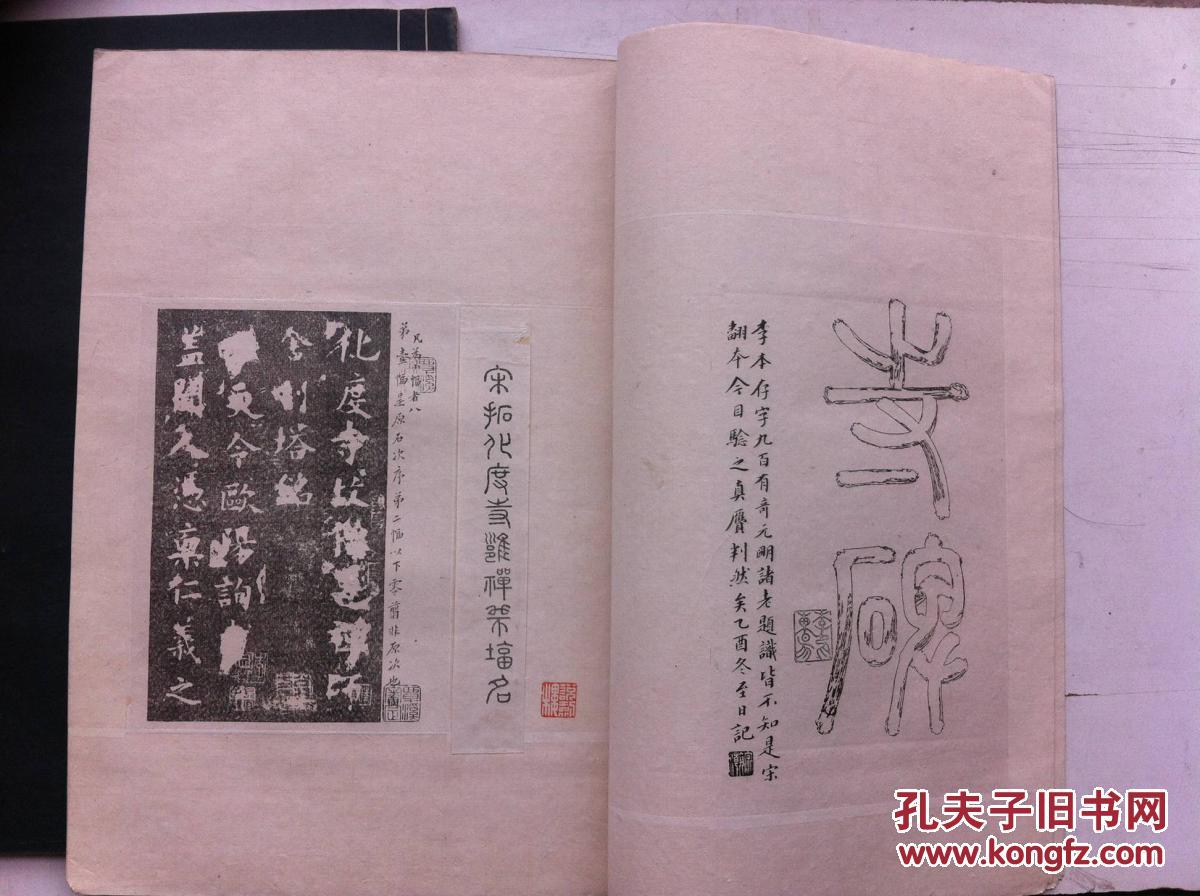 寺碑
李本存字九百有奇元明諸老題識皆不知是宋
翻本今目驗之真贗判然矣乙酉冬至日記
宋拓化度寺邕禪師塔名
凡蓋 幅者八
第壹幅是原石次序第二幅以下零翦非原次也
化度寺故禪 師
舍利塔銘
今歐陽詢
蓋聞人憑稟仁義之
孔夫子旧书网
www.kongfz.com